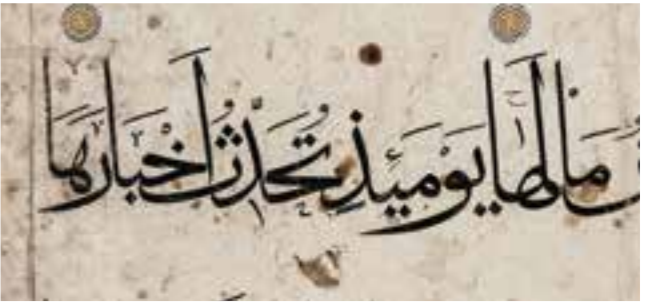 مَا لَهَا يَوْمَئِذٍ تُحَدِّثُ أَخْبَارَهَا